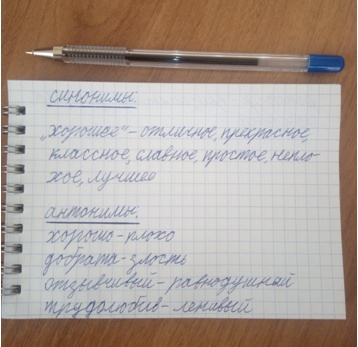 синонимы.
"хорошее" - отличное, прекрасное,
классное, славное, простое, непло-
хое, лучшее
антонимы.
хорошо - плохо
доброта - злость
отзывчивый - равнодушный
трудолюбив - ленивый